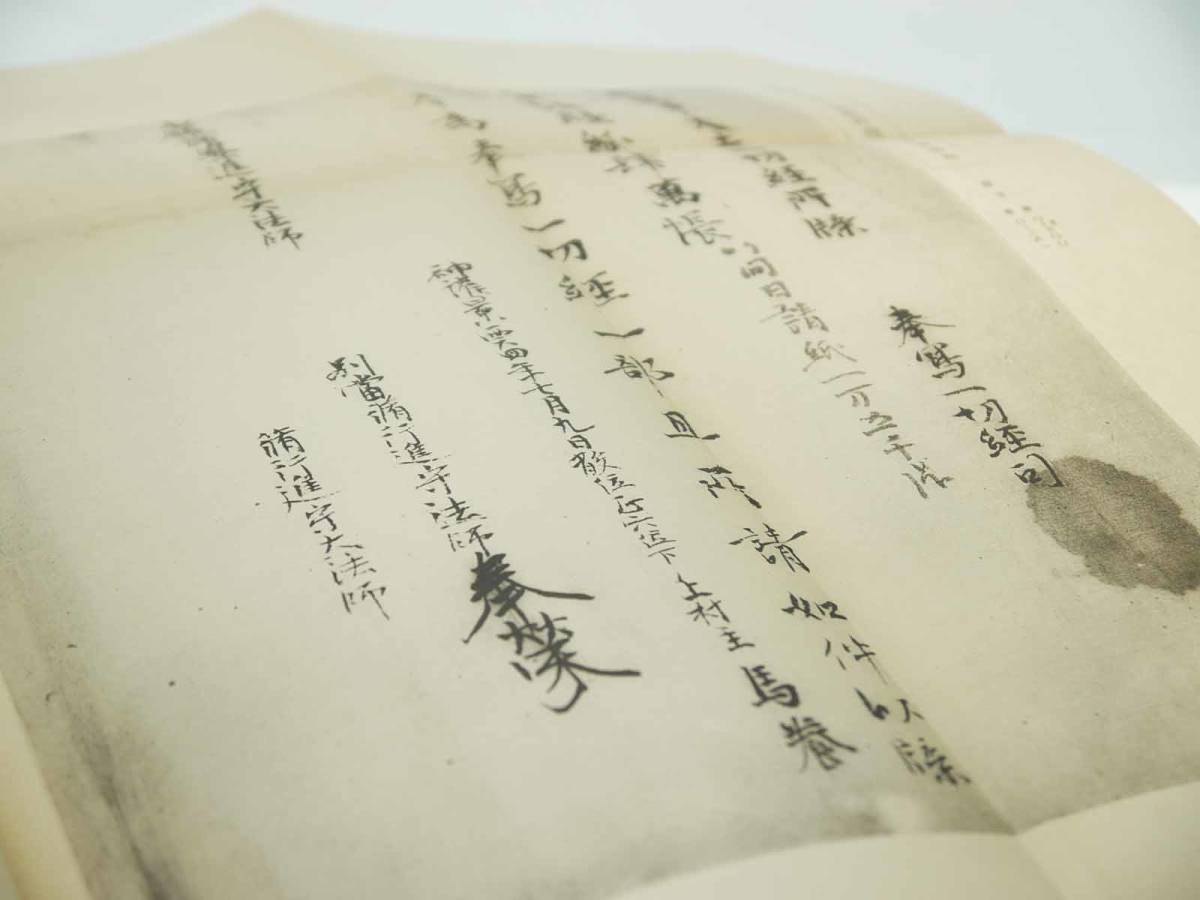 切經所牒 奉寫一切經司
紙肆萬張 同日請紙一万五千張
為奉寫一切經一部且所請如件以牒
神護景雲四年七月九日散位正六位下上村主馬養
別當脩行進守法師奉榮
脩行進守大法師
進守大法師